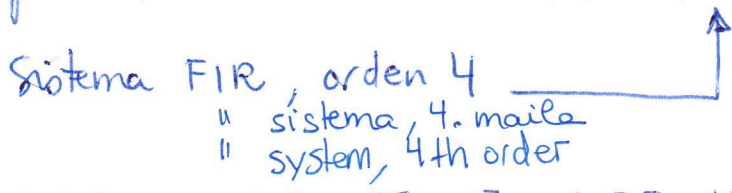 Sistema FIR, orden 4
" sistema, 4. maila
" system, 4th order